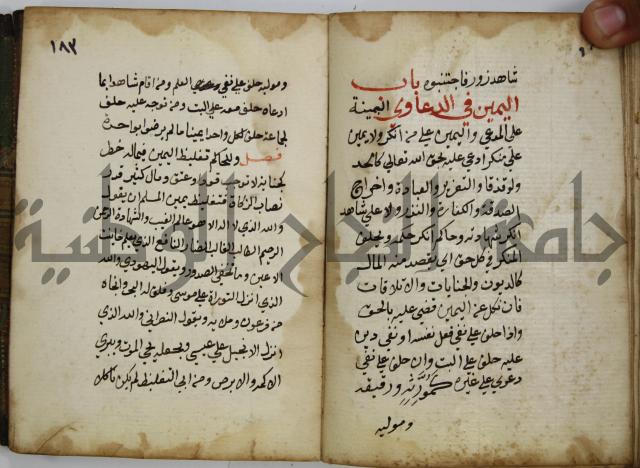 شاهد زور فاجتنبوه باب
اليمين في الدعاوي البينة
على المدعي واليمين على من انكر ولا يمين
على منكر ادعي عليه بحق الله تعالى كالحد
ولو قذفا والتعزير والعبادة واخراج
الصدقة والكفارة والنذر ولا على شاهد
انكر شهادته وحاكم انكر حكمه ويحلف
المنكر في كل حق آدمي يقصد منه المال
كالديون والجنايات والاتلافات
فان نكل عن اليمين قضي عليه بالحق
واذا حلف على نفي فعل نفسه او نفي دين
عليه حلف على البت وان حلف على نفي
دعوى على غيره كمورثه ورقيقه
وموليه
١٨٣
وموليه حلف على نفي العلم ومن اقام شاهدا بما
ادعاه حلف معه على البت ومن توجه عليه حلف
لجماعة حلف لكل واحد يمينا ما لم يرضوا بواحدة
فصل وللحاكم تغليظ اليمين فيما له خطر
كجناية لا توجب قودا وعتق ومال كثير قدر
نصاب الزكاة فتغليظ يمين المسلم ان يقول
والله الذي لا اله الا هو عالم الغيب والشهادة الرحمن
الرحيم الطالب الغالب الضار النافع الذي يعلم خائنة
الاعين وما تخفي الصدور ويقول اليهودي والله
الذي انزل التوراة على موسى وفلق له البحر وانجاه
من فرعون وملايه ويقول النصراني والله الذي
انزل الانجيل على عيسى وجعله يحيي الموتى ويبري
الاكمه والابرص ومن ابى التغليظ لم يكن ناكلا
جامعة النجاح الوطنية